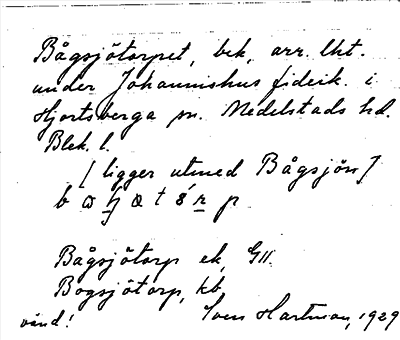 Bågsjötorpet, bek. arr. lht.
under Johannishus fideik. i
Hjortsberga sn. Medelstads hd.
Blek. l.
[ligger utmed Bågsjön]
Bågsjötorp ek. GII.
Bogsjötorp, kb.
vänd! Sven Hartman, 1929